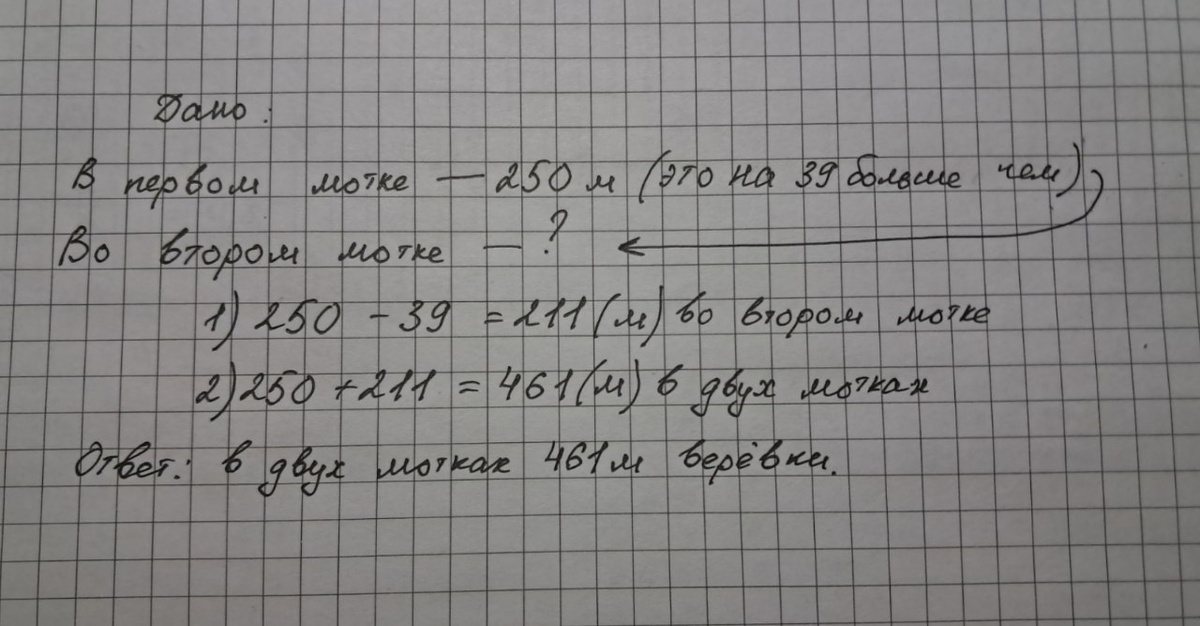 Дано:
В первом мотке — 250 м (это на 39 больше чем)
Во втором мотке — ?
1) 250 - 39 = 211 (м) во втором мотке
2) 250 + 211 = 461 (м) в двух мотках
Ответ: в двух мотках 461 м верёвки.